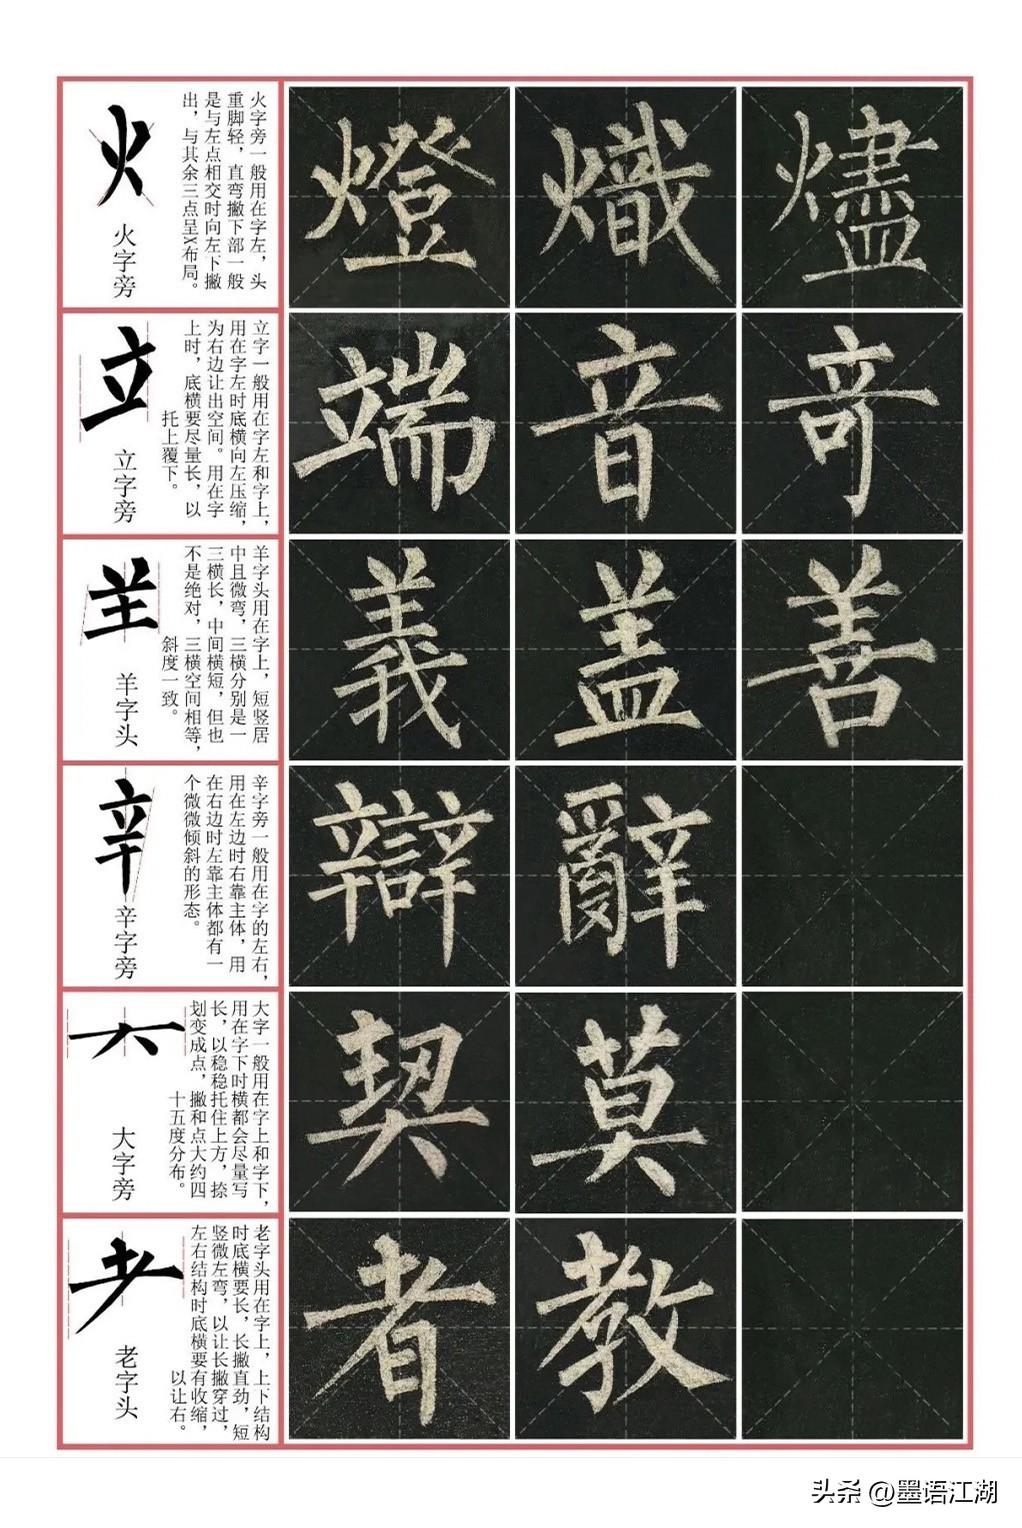 火
火字旁
火字旁一般用在字左，头
重脚轻，直弯撇下部一般
是与左点相交时向左下撇
出，与其余三点呈X布局。
燈
熾
燼
立
立字旁
立字一般用在字左和字上，
用在字左时底横向左压缩，
为右边让出空间。用在字
上时，底横要尽量长，以
托上覆下。
端
音
竒
羊字头
羊字头用在字上，短竖居
中且微弯，三横分别是一
三横长，中间横短，但也
不是绝对，三横空间相等，
斜度一致。
義
盖
善
辛
辛字旁
辛字旁一般用在字的左右，
用在左边时右靠主体，用
在右边时左靠主体都有一
个微微倾斜的形态。
辯
辭
大字旁
大字一般用在字上和字下，
用在字下时横都会尽量写
长，以稳稳托住上方，捺
划变成点，撇和点大约四
十五度分布。
契
莫
老字头
老字头用在字上，上下结构
时底横要长，长撇直劲，短
竖微左弯，以让长撇穿过，
左右结构时底横要有收缩，
以让右。
者
教
头条 @墨语江湖